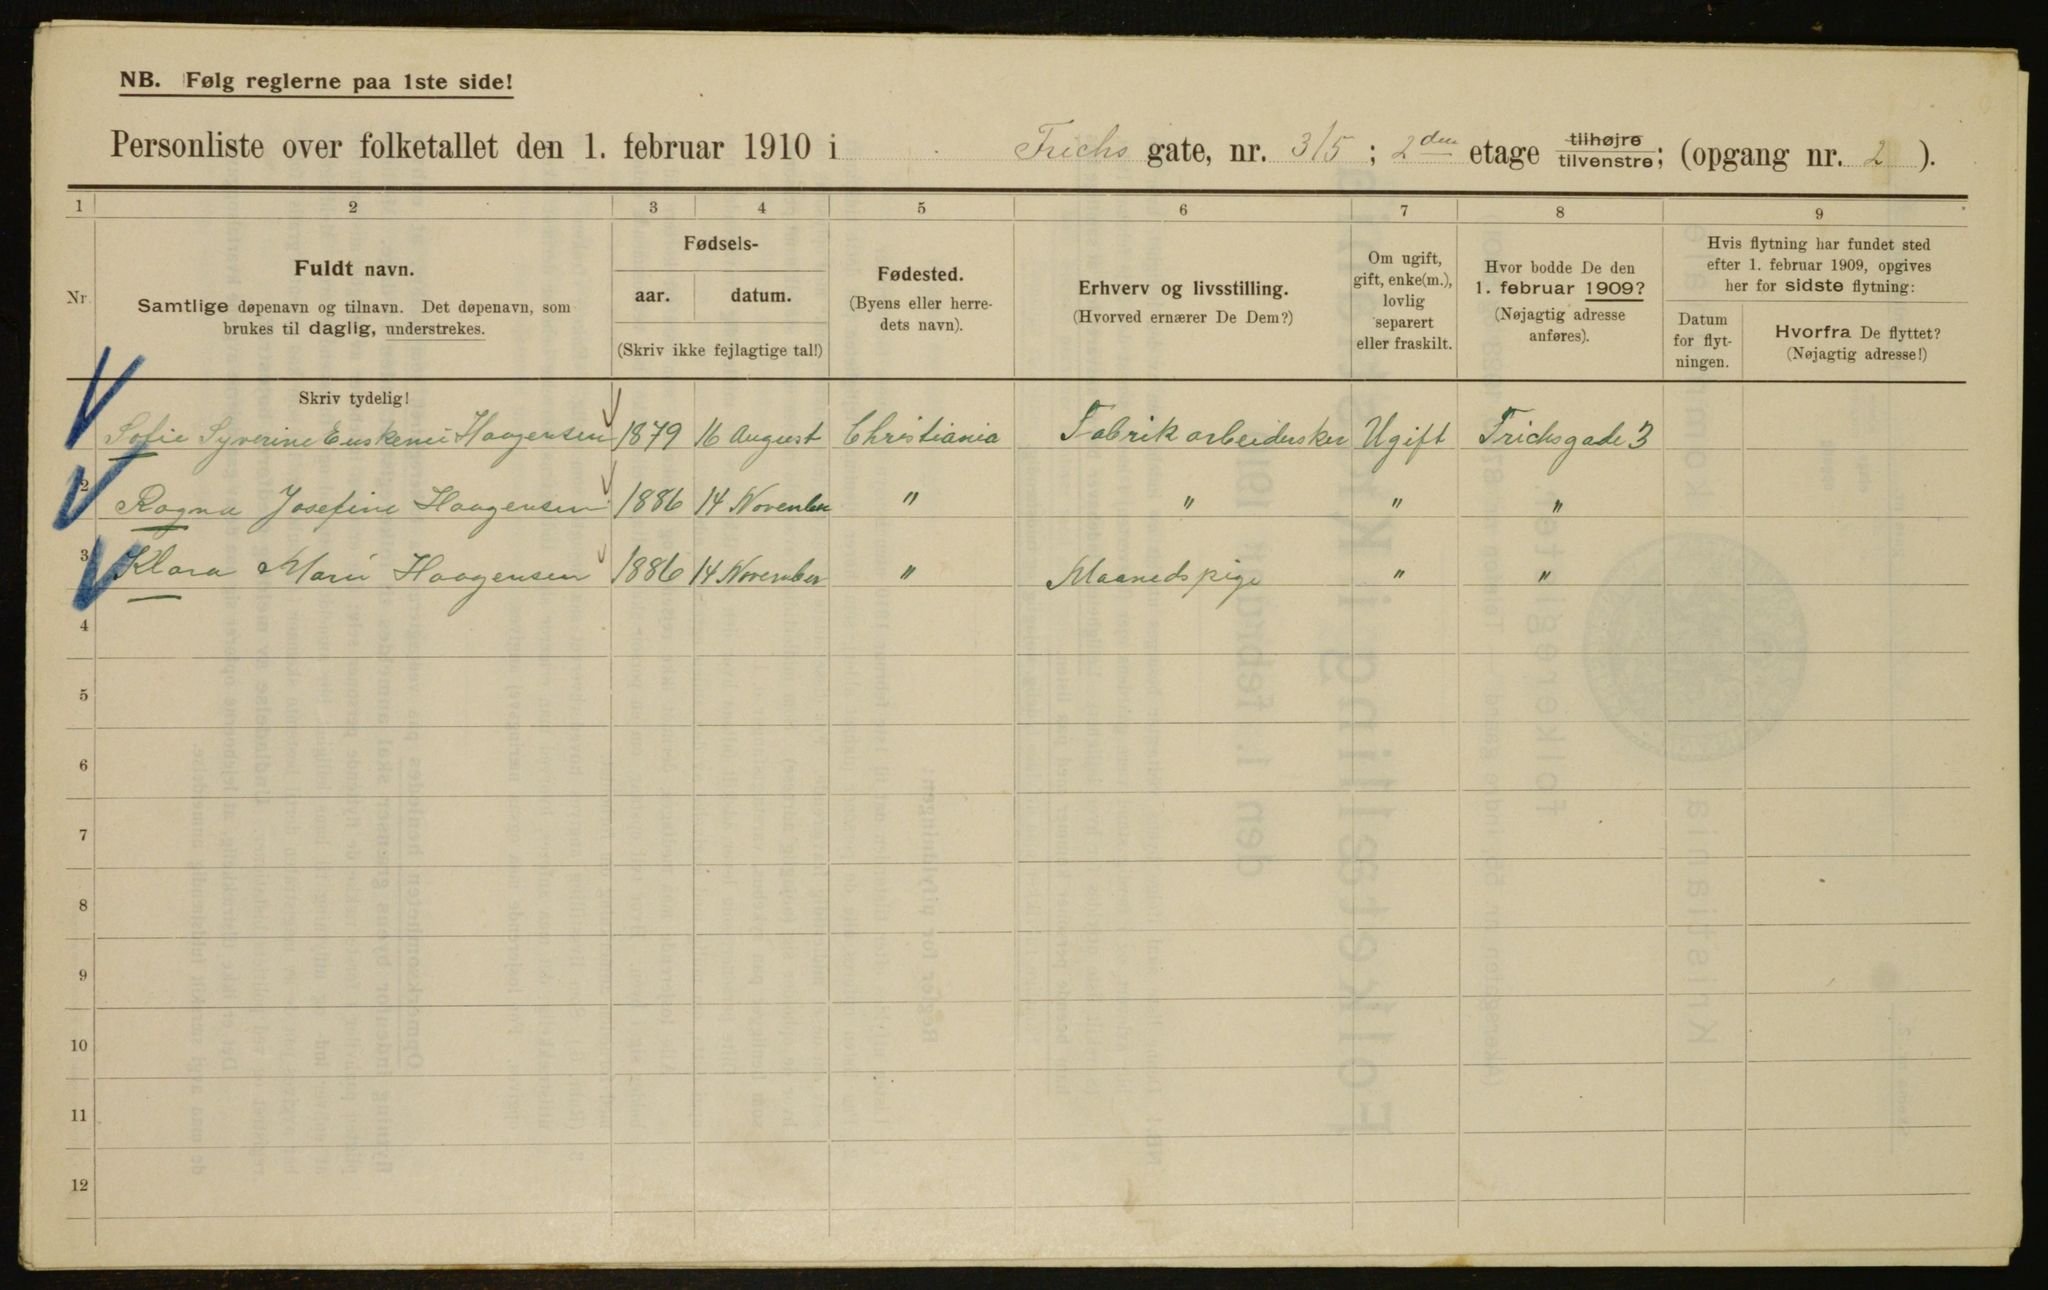 NB. Følg reglerne paa 1ste side!
Personliste over folketallet den 1. februar 1910 i Frichs gate, nr. 3/5 ; 2den etage tilhøjre tilvenstre; (opgang nr. 2 ).
1 2 3 4 5 6 7 8 9
Nr. Fuldt navn. Samtlige døpenavn og tilnavn. Det døpenavn, som brukes til daglig, understrekes.
Fødsels- aar. datum. (Skriv ikke fejlagtige tal!)
Fødested. (Byens eller herredets navn).
Erhverv og livsstilling. (Hvorved ernærer De Dem?)
Om ugift, gift, enke(m.), lovlig separert eller fraskilt.
Hvor bodde De den 1. februar 1909? (Nøjagtig adresse anføres).
Hvis flytning har fundet sted efter 1. februar 1909, opgives her for sidste flytning:
Datum for flytningen. Hvorfra De flyttet? (Nøjagtig adresse!)
Skriv tydelig!
Sofie Syverine Haagensen 1879 16 August Christiania Fabrikarbeiderske Ugift Frichsgade 3
2 Ragna Josefine Haagensen 1886 14 November " " " "
3 Klara Marie Haagensen 1886 14 November " Maanedspige " "
4
5
6
7
8
9
10
11
12